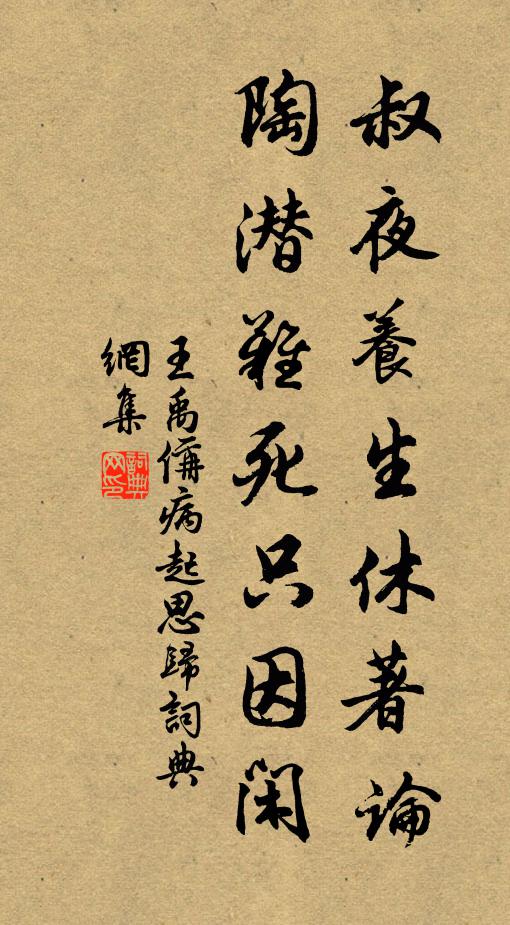 叔夜養生休著論
陶潜難死只因閑
王禹偁病起思歸詞典
網集
詞典网印